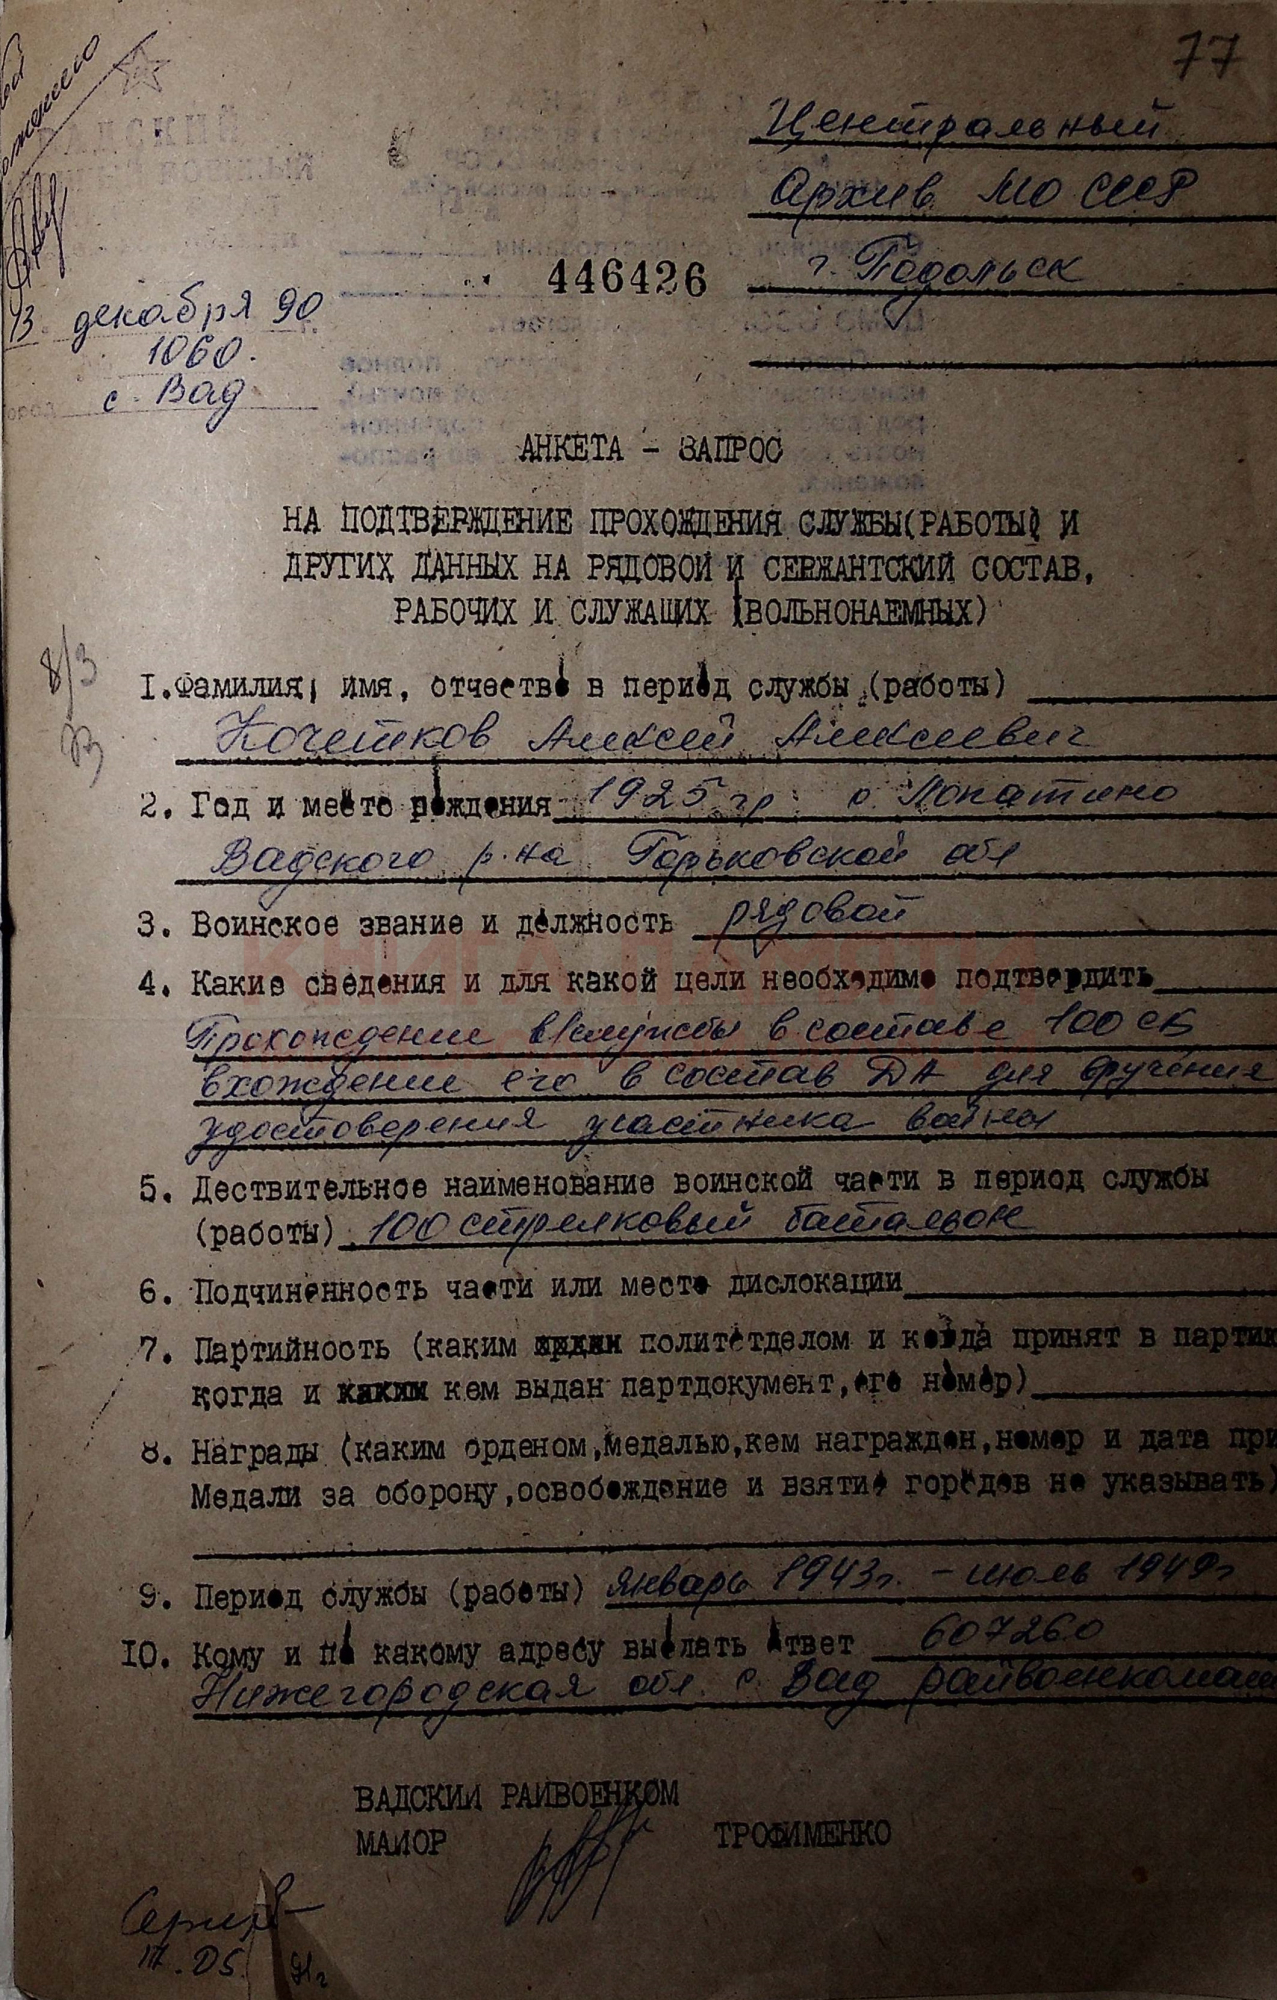 77
Центральный
Архив МО СССР
г. Подольск
446426
13 декабря 90
1060.
с. Вад
АНКЕТА - ЗАПРОС
НА ПОДТВЕРЖДЕНИЕ ПРОХОЖДЕНИЯ СЛУЖБЫ(РАБОТЫ) И
ДРУГИХ ДАННЫХ НА РЯДОВОЙ И СЕРЖАНТСКИЙ СОСТАВ,
РАБОЧИХ И СЛУЖАЩИХ (ВОЛЬНОНАЕМНЫХ)
8/3
I. Фамилия, имя, отчество в период службы (работы)
Кочетков Алексей Алексеевич
2. Год и место рождения 1925 гр с Лопатино
Вадского р-на Горьковской обл
3. Воинское звание и должность рядовой
4. Какие сведения и для какой цели необходимо подтвердить
Прохождении в/службы в составе 100 сб
вхождении его в состав ДА для вручения
удостоверения участника войны
5. Дествительное наименование воинской части в период службы
(работы) 100 стрелковый батальон
6. Подчиненность части или место дислокации
7. Партийность (каким политотделом и когда принят в партию
когда и каким кем выдан партдокумент, его номер)
8. Награды (каким орденом, медалью, кем награжден, номер и дата при
Медали за оборону, освобождение и взятие городов не указывать)
9. Период службы (работы) январь 1943г. - июль 1949г
10. Кому и по какому адресу выслать ответ 607260
Нижегородская обл. с. Вад райвоенкомат
ВАДСКИЙ РАЙВОЕНКОМ
МАЙОР ТРОФИМЕНКО
91г